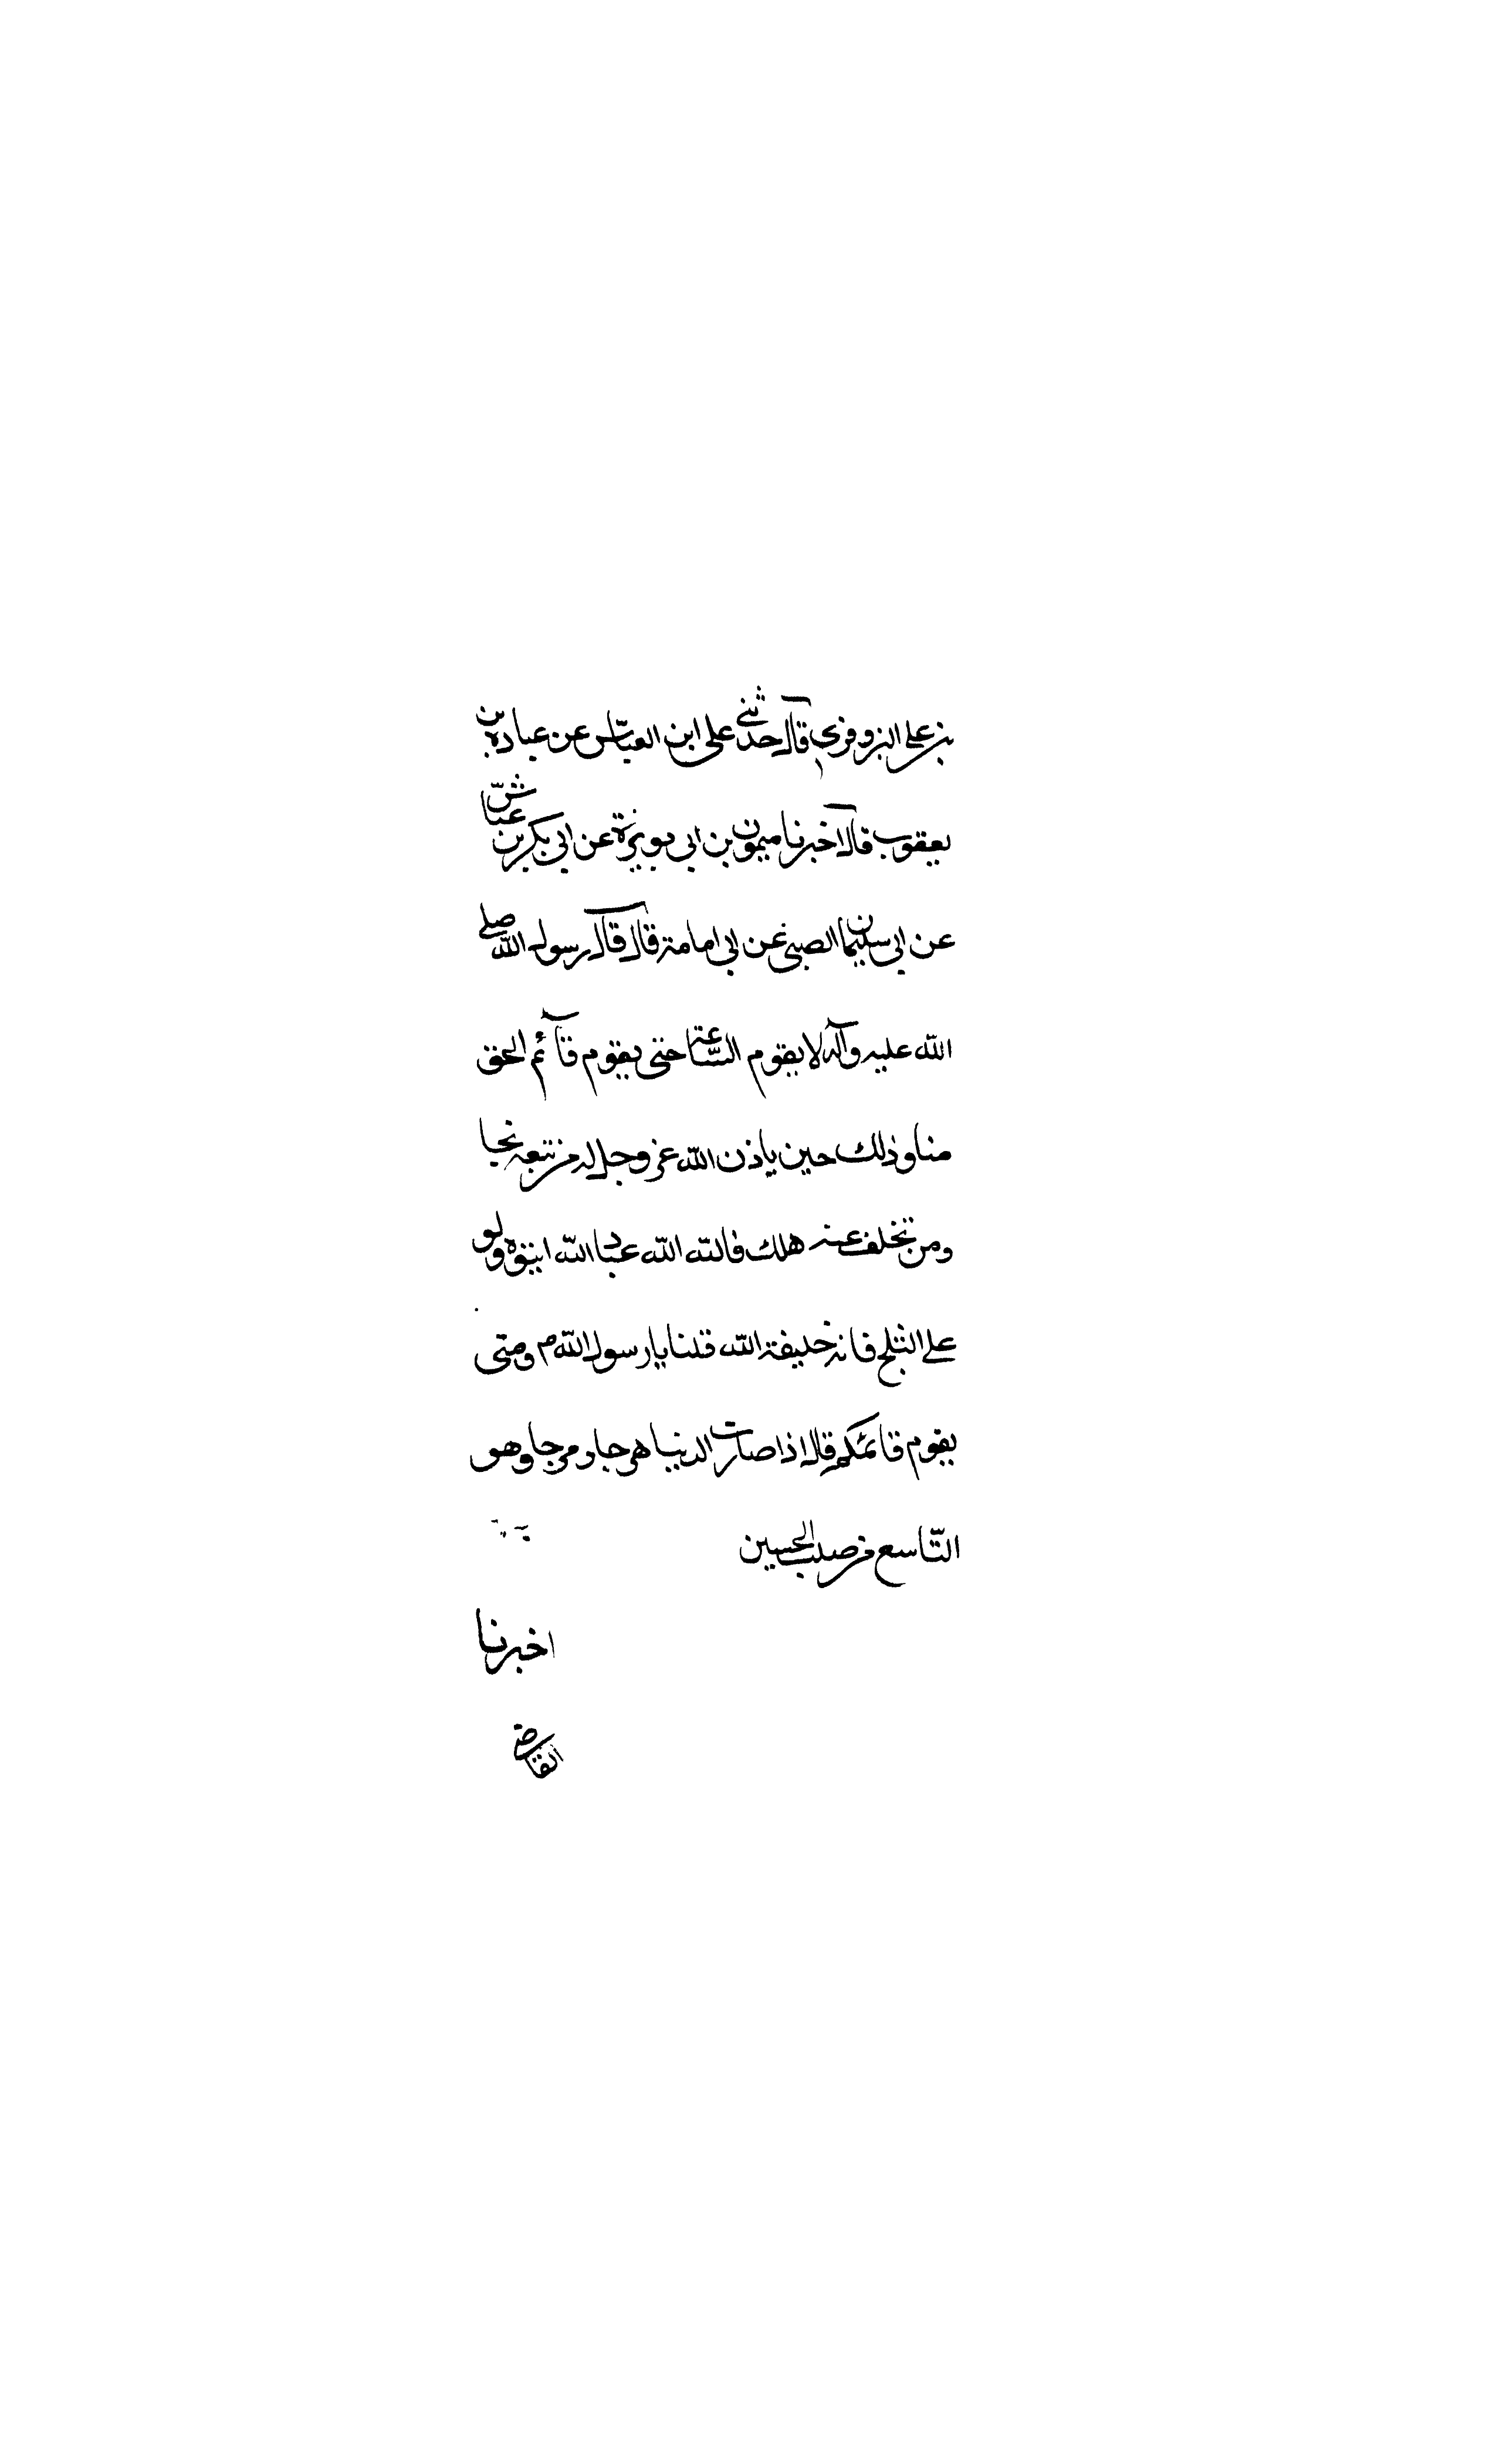 بن علی البزوفری قال حدثنی علی ابن العباس عن عباد بن
یعقوب قال اخبرنا میمون بن ابی نویرة عن ابی بکر بن عیّاش
عن ابی سلیمان الضبی عن ابی امامة قال قال رسول الله صلی
الله علیه وآله لا یقوم السّاعة حتی یقوم قآئم الحق
منا وذلك حین یاذن الله عز وجل له من تبعه نجا
ومن تخلف عنه هلك فالله الله عباد الله ایتوه ولو
علی الثلج فانه خلیفة الله قلنا یا رسول الله م ومتی
یقوم قائمکم قال اذا صارت الدنیا هرجا ومرجا وهو
التّاسع من صلب الحسین
اخبرنا
القاضی